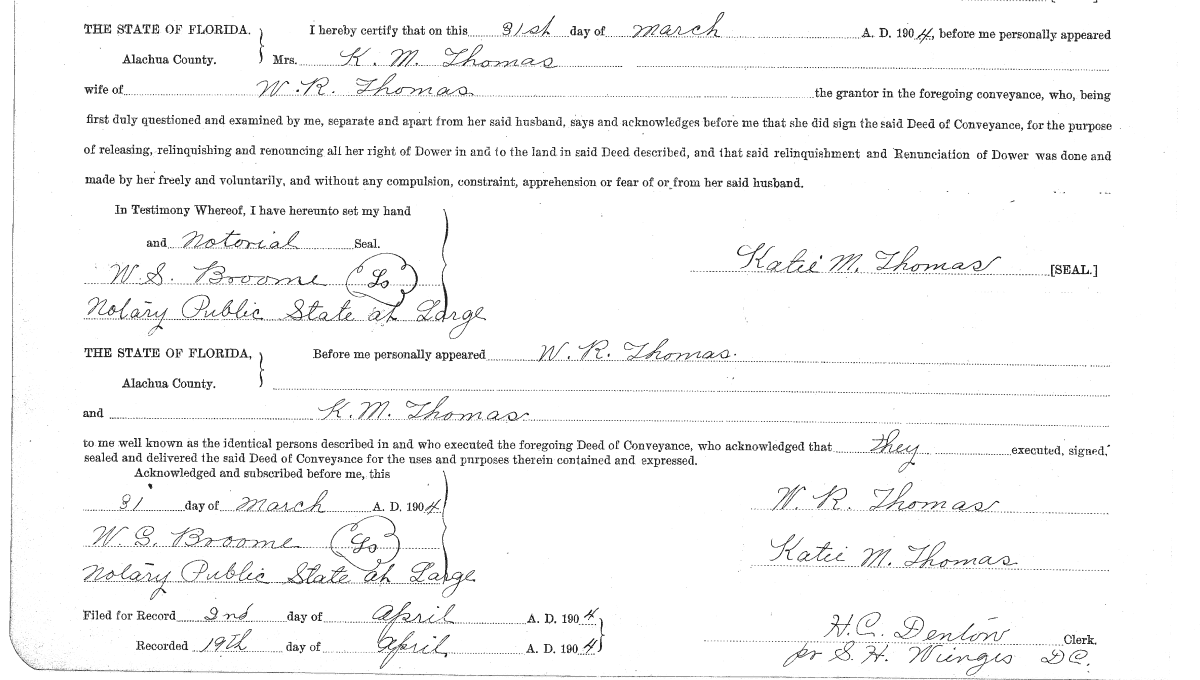 THE STATE OF FLORIDA. I hereby certify that on this 31st day of March A. D. 1904, before me personally appeared
Alachua County. Mrs. K. M. Thomas
wife of W. R. Thomas the grantor in the foregoing conveyance, who, being
first duly questioned and examined by me, separate and apart from her said husband, says and acknowledges before me that she did sign the said Deed of Conveyance, for the purpose
of releasing, relinquishing and renouncing all her right of Dower in and to the land in said Deed described, and that said relinquishment and Renunciation of Dower was done and
made by her freely and voluntarily, and without any compulsion, constraint, apprehension or fear of or from her said husband.
In Testimony Whereof, I have hereunto set my hand
and Notorial Seal.
Katie M. Thomas [SEAL.]
W. S. Broome Ls
Notary Public State at Large
THE STATE OF FLORIDA, Before me personally appeared W. R. Thomas.
Alachua County.
and K. M. Thomas
to me well known as the identical persons described in and who executed the foregoing Deed of Conveyance, who acknowledged that they executed, signed,
sealed and delivered the said Deed of Conveyance for the uses and purposes therein contained and expressed.
Acknowledged and subscribed before me, this
31 day of March A. D. 1904
W. R. Thomas
W. S. Broome Ls
Katie M. Thomas
Notary Public State at Large
Filed for Record 2nd day of April A. D. 1904
H. C. Denton Clerk.
Recorded 19th day of April A. D. 1904
pr S. H. Wienges D C.